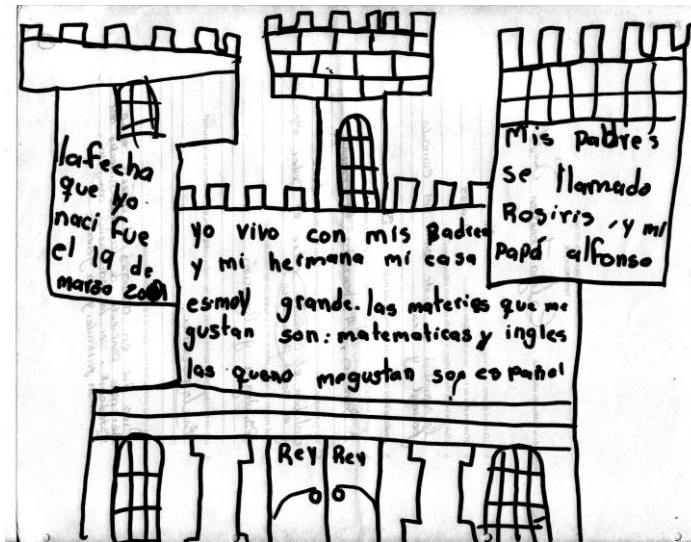 la fecha
que yo
naci fue
el 19 de
marzo 2001
yo vivo con mis Padres
y mi hermana mi casa
esmoy grande. las materies que me
gustan son: matematicas y ingles
las queno megustan son español
Mis padres
se llamado
Rosiris, y mi
papá alfonso
Rey Rey